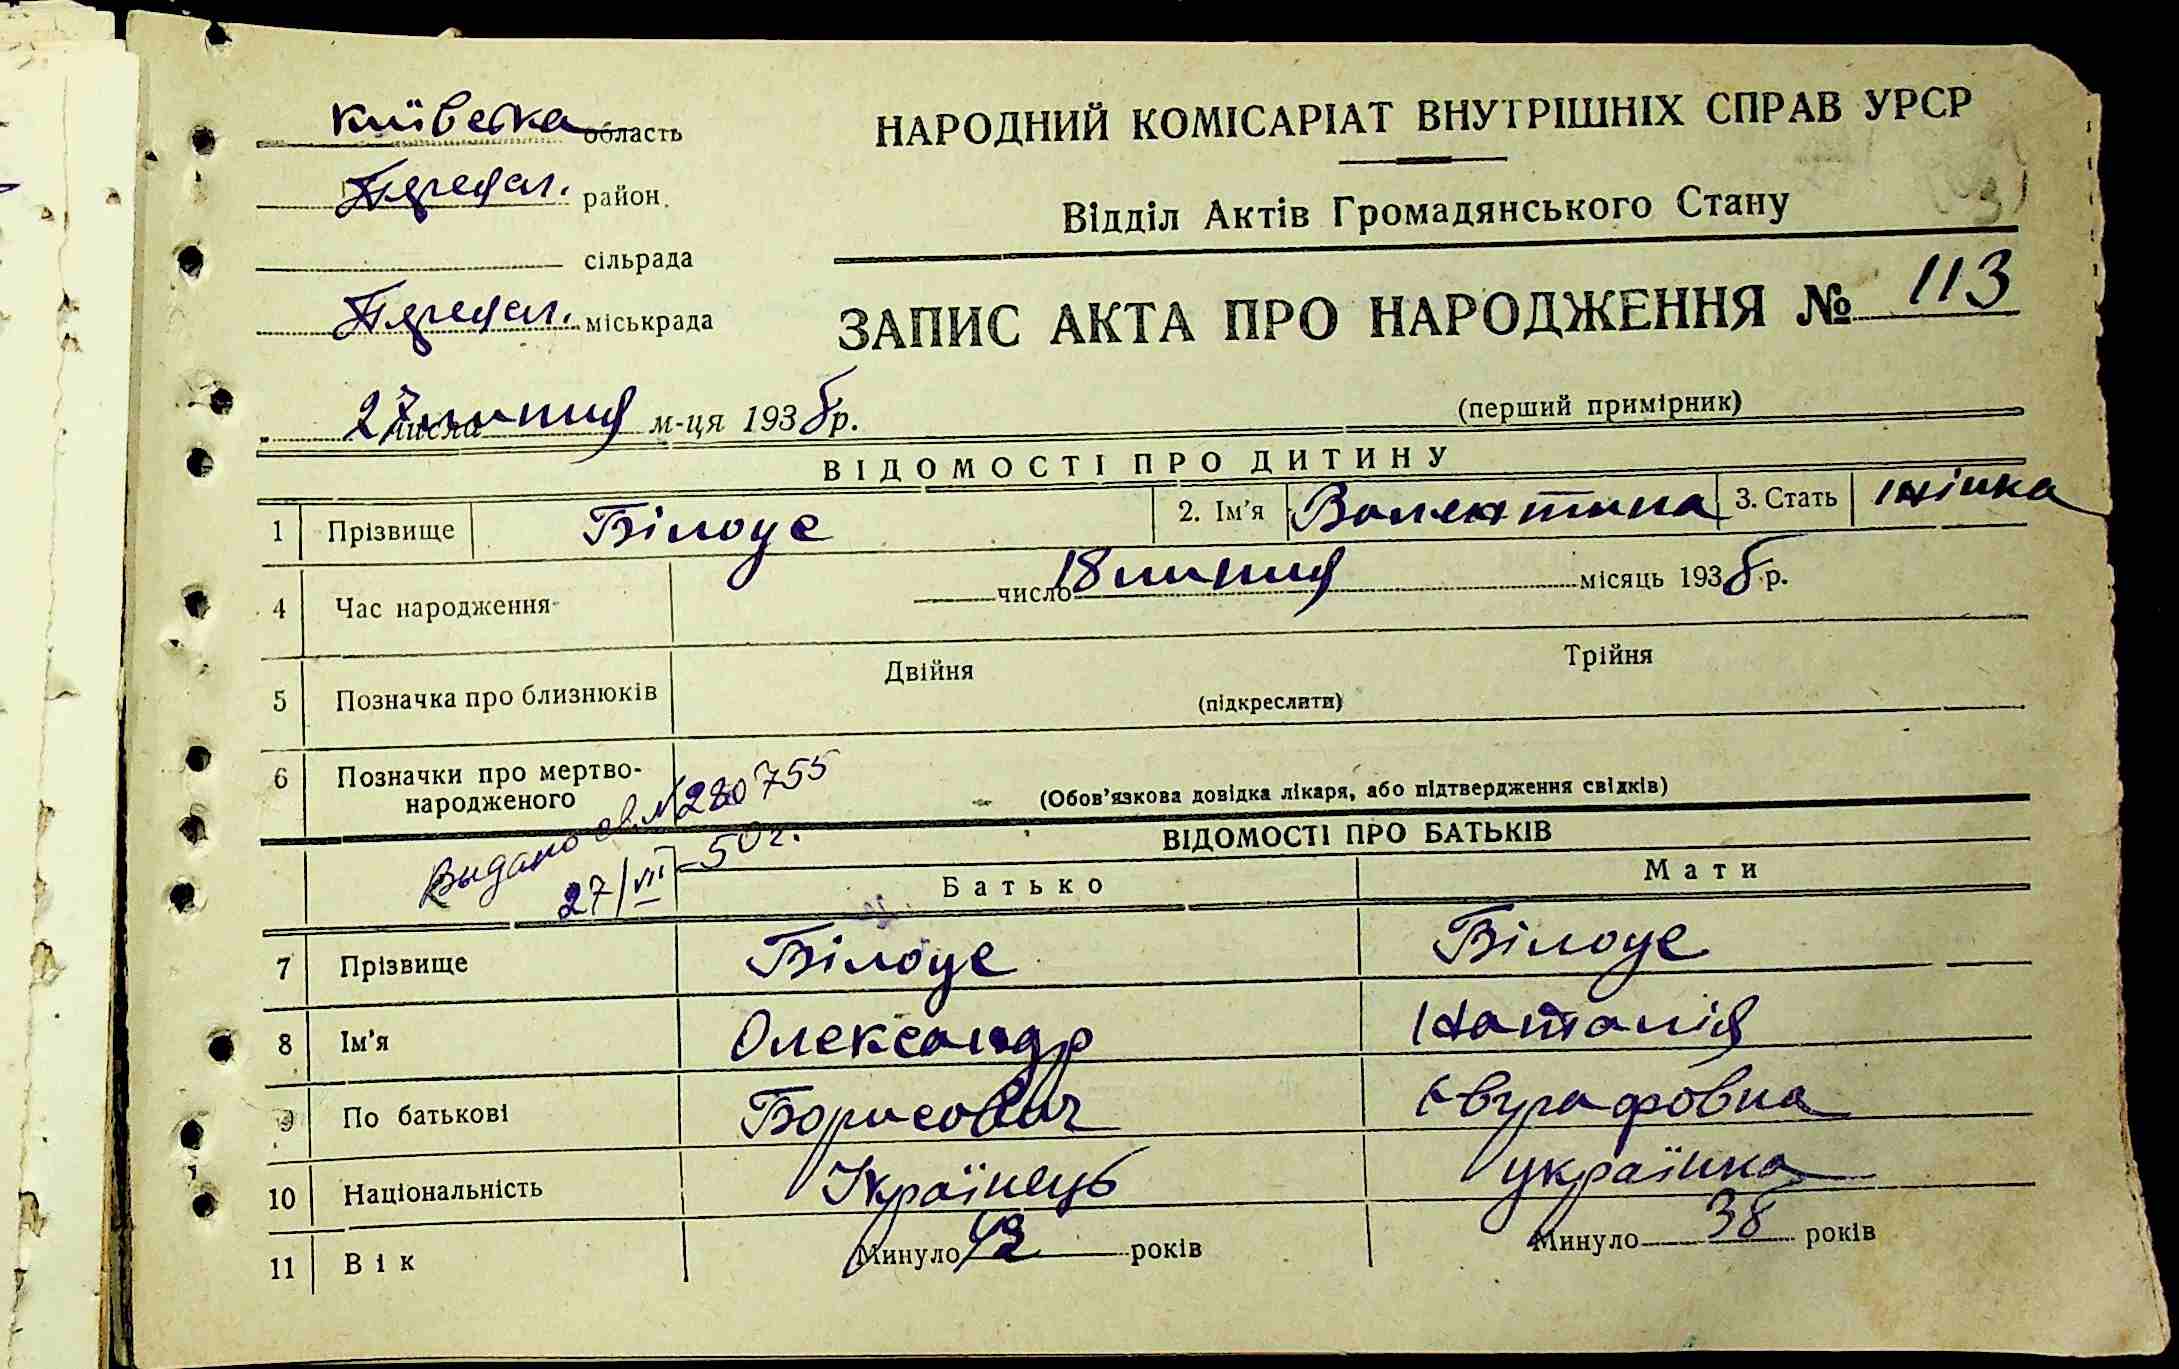 Київска область
район
сільрада
міськрада
НАРОДНИЙ КОМІСАРІАТ ВНУТРІШНІХ СПРАВ УРСР
Відділ Актів Громадянського Стану
ЗАПИС АКТА ПРО НАРОДЖЕННЯ № 113
27 числа липня м-ця 193 р.
(перший примірник)
ВІДОМОСТІ ПРО ДИТИНУ
1 Прізвище Білоус 2. Ім'я Валентина 3. Стать жінка
4 Час народження число 18 липня місяць 193 р.
5 Позначка про близнюків Двійня Трійня
(підкреслити)
6 Позначки про мертво-
народженого
(Обов'язкова довідка лікаря, або підтвердження свідків)
Выдано св. № 280755
27/VII 50 г.
ВІДОМОСТІ ПРО БАТЬКІВ
Батько Мати
7 Прізвище Білоус Білоус
8 Ім'я Олександр Наталія
9 По батькові Борисович Євграфовна
10 Національність Українець українка
11 Вік Минуло років Минуло 38 років